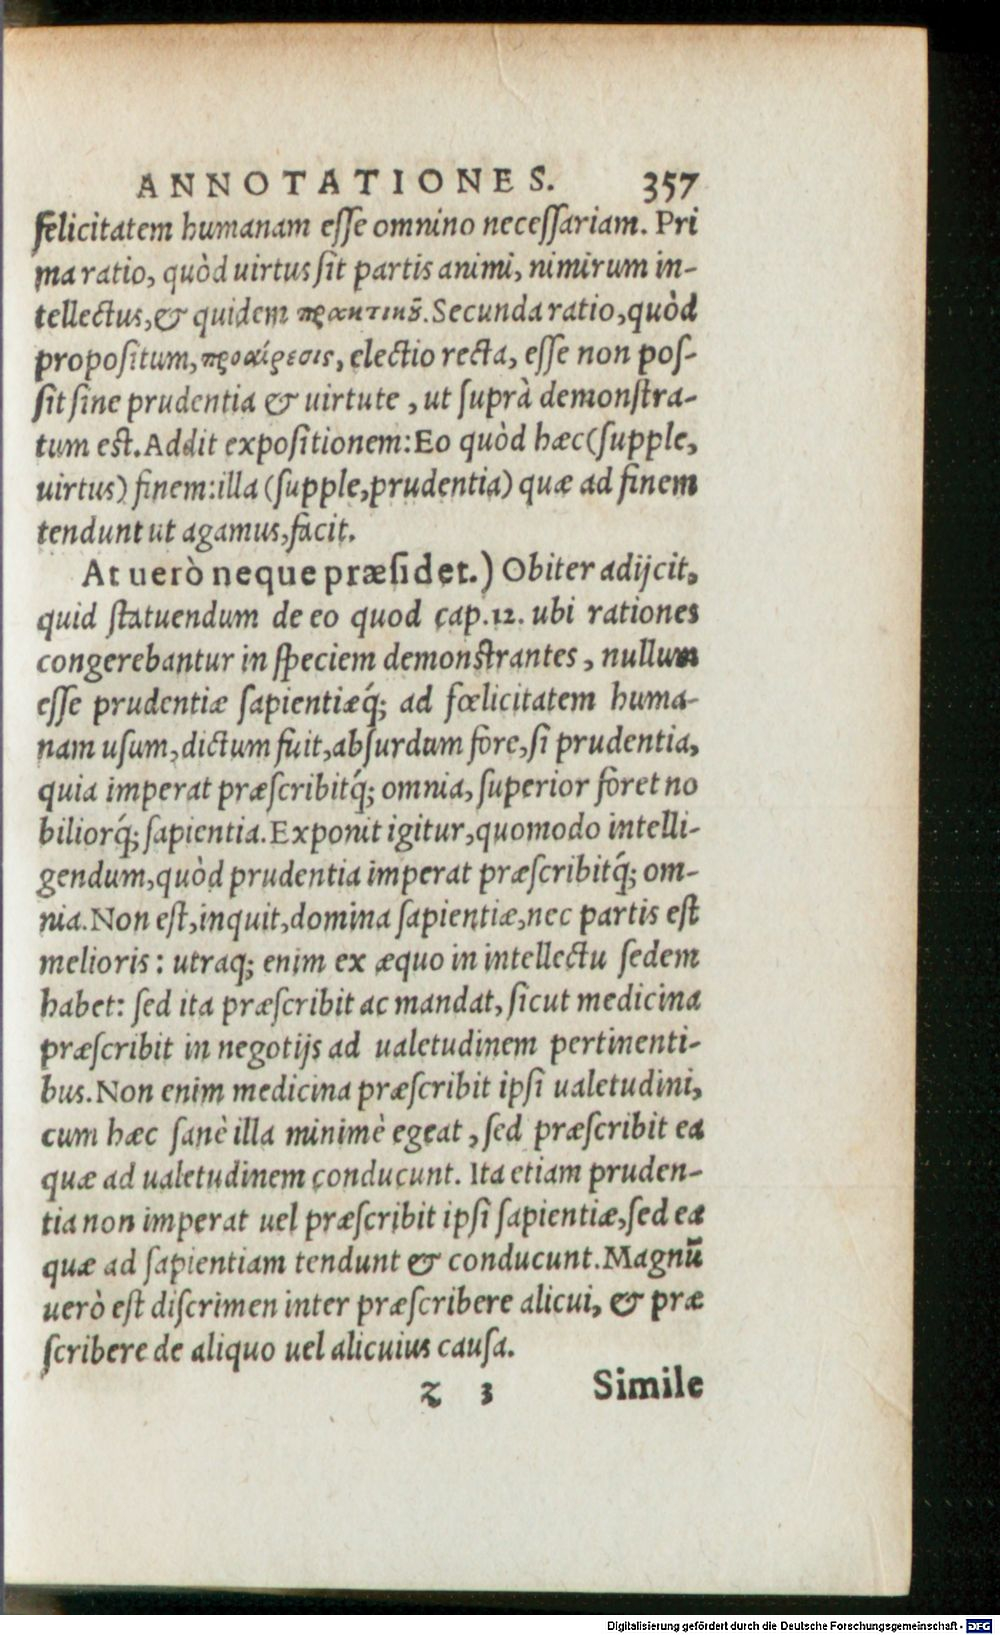 ANNOTATIONES. 357
felicitatem humanam eſſe omnino neceſſariam. Pri
ma ratio, quòd uirtus ſit partis animi, nimirum in-
tellectus, & quidem πρακτικῆς. Secunda ratio, quòd
propoſitum, προαίρεσις, electio recta, eſſe non poſ-
ſit ſine prudentia & uirtute, ut ſuprà demonſtra-
tum eſt. Addit expoſitionem: Eo quòd hæc (ſupple,
uirtus) finem: illa (ſupple, prudentia) quæ ad finem
tendunt ut agamus, facit.
At uerò neque præſidet.) Obiter adijcit,
quid ſtatuendum de eo quod cap. 12. ubi rationes
congerebantur in ſpeciem demonſtrantes, nullum
eſſe prudentiæ ſapientiæq́; ad fœlicitatem huma-
nam uſum, dictum fuit, abſurdum fore, ſi prudentia,
quia imperat præſcribitq́; omnia, ſuperior foret no
biliorq́; ſapientia. Exponit igitur, quomodo intelli-
gendum, quòd prudentia imperat præſcribitq́; om-
nia. Non eſt, inquit, domina ſapientiæ, nec partis eſt
melioris: utraq; enim ex æquo in intellectu ſedem
habet: ſed ita præſcribit ac mandat, ſicut medicina
præſcribit in negotijs ad ualetudinem pertinenti-
bus. Non enim medicina præſcribit ipſi ualetudini,
cum hæc ſanè illa minimè egeat, ſed præſcribit ea
quæ ad ualetudinem conducunt. Ita etiam pruden-
tia non imperat uel præſcribit ipſi ſapientiæ, ſed ea
quæ ad ſapientiam tendunt & conducunt. Magnū
uerò eſt diſcrimen inter præſcribere alicui, & præ
ſcribere de aliquo uel alicuius cauſa.
z 3 Simile
Digitalisierung gefördert durch die Deutsche Forschungsgemeinschaft - DFG